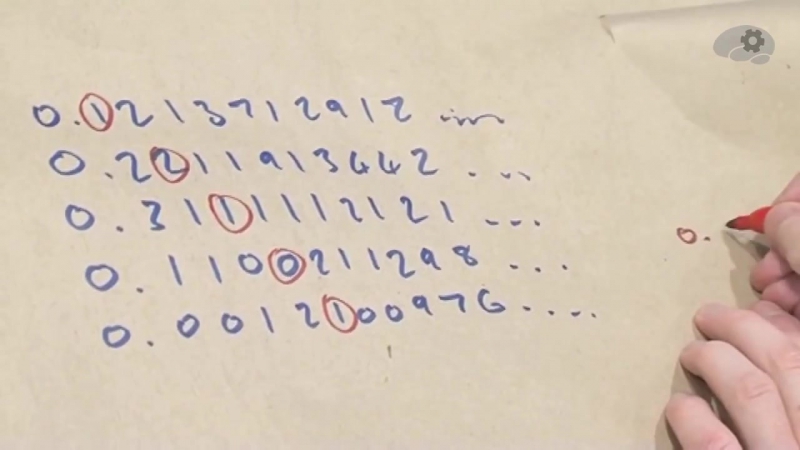 0.1213712912 ...
0.2211913442 ...
0.3111112121 ...
0.1100211298 ...
0.0012100976 ....
0.